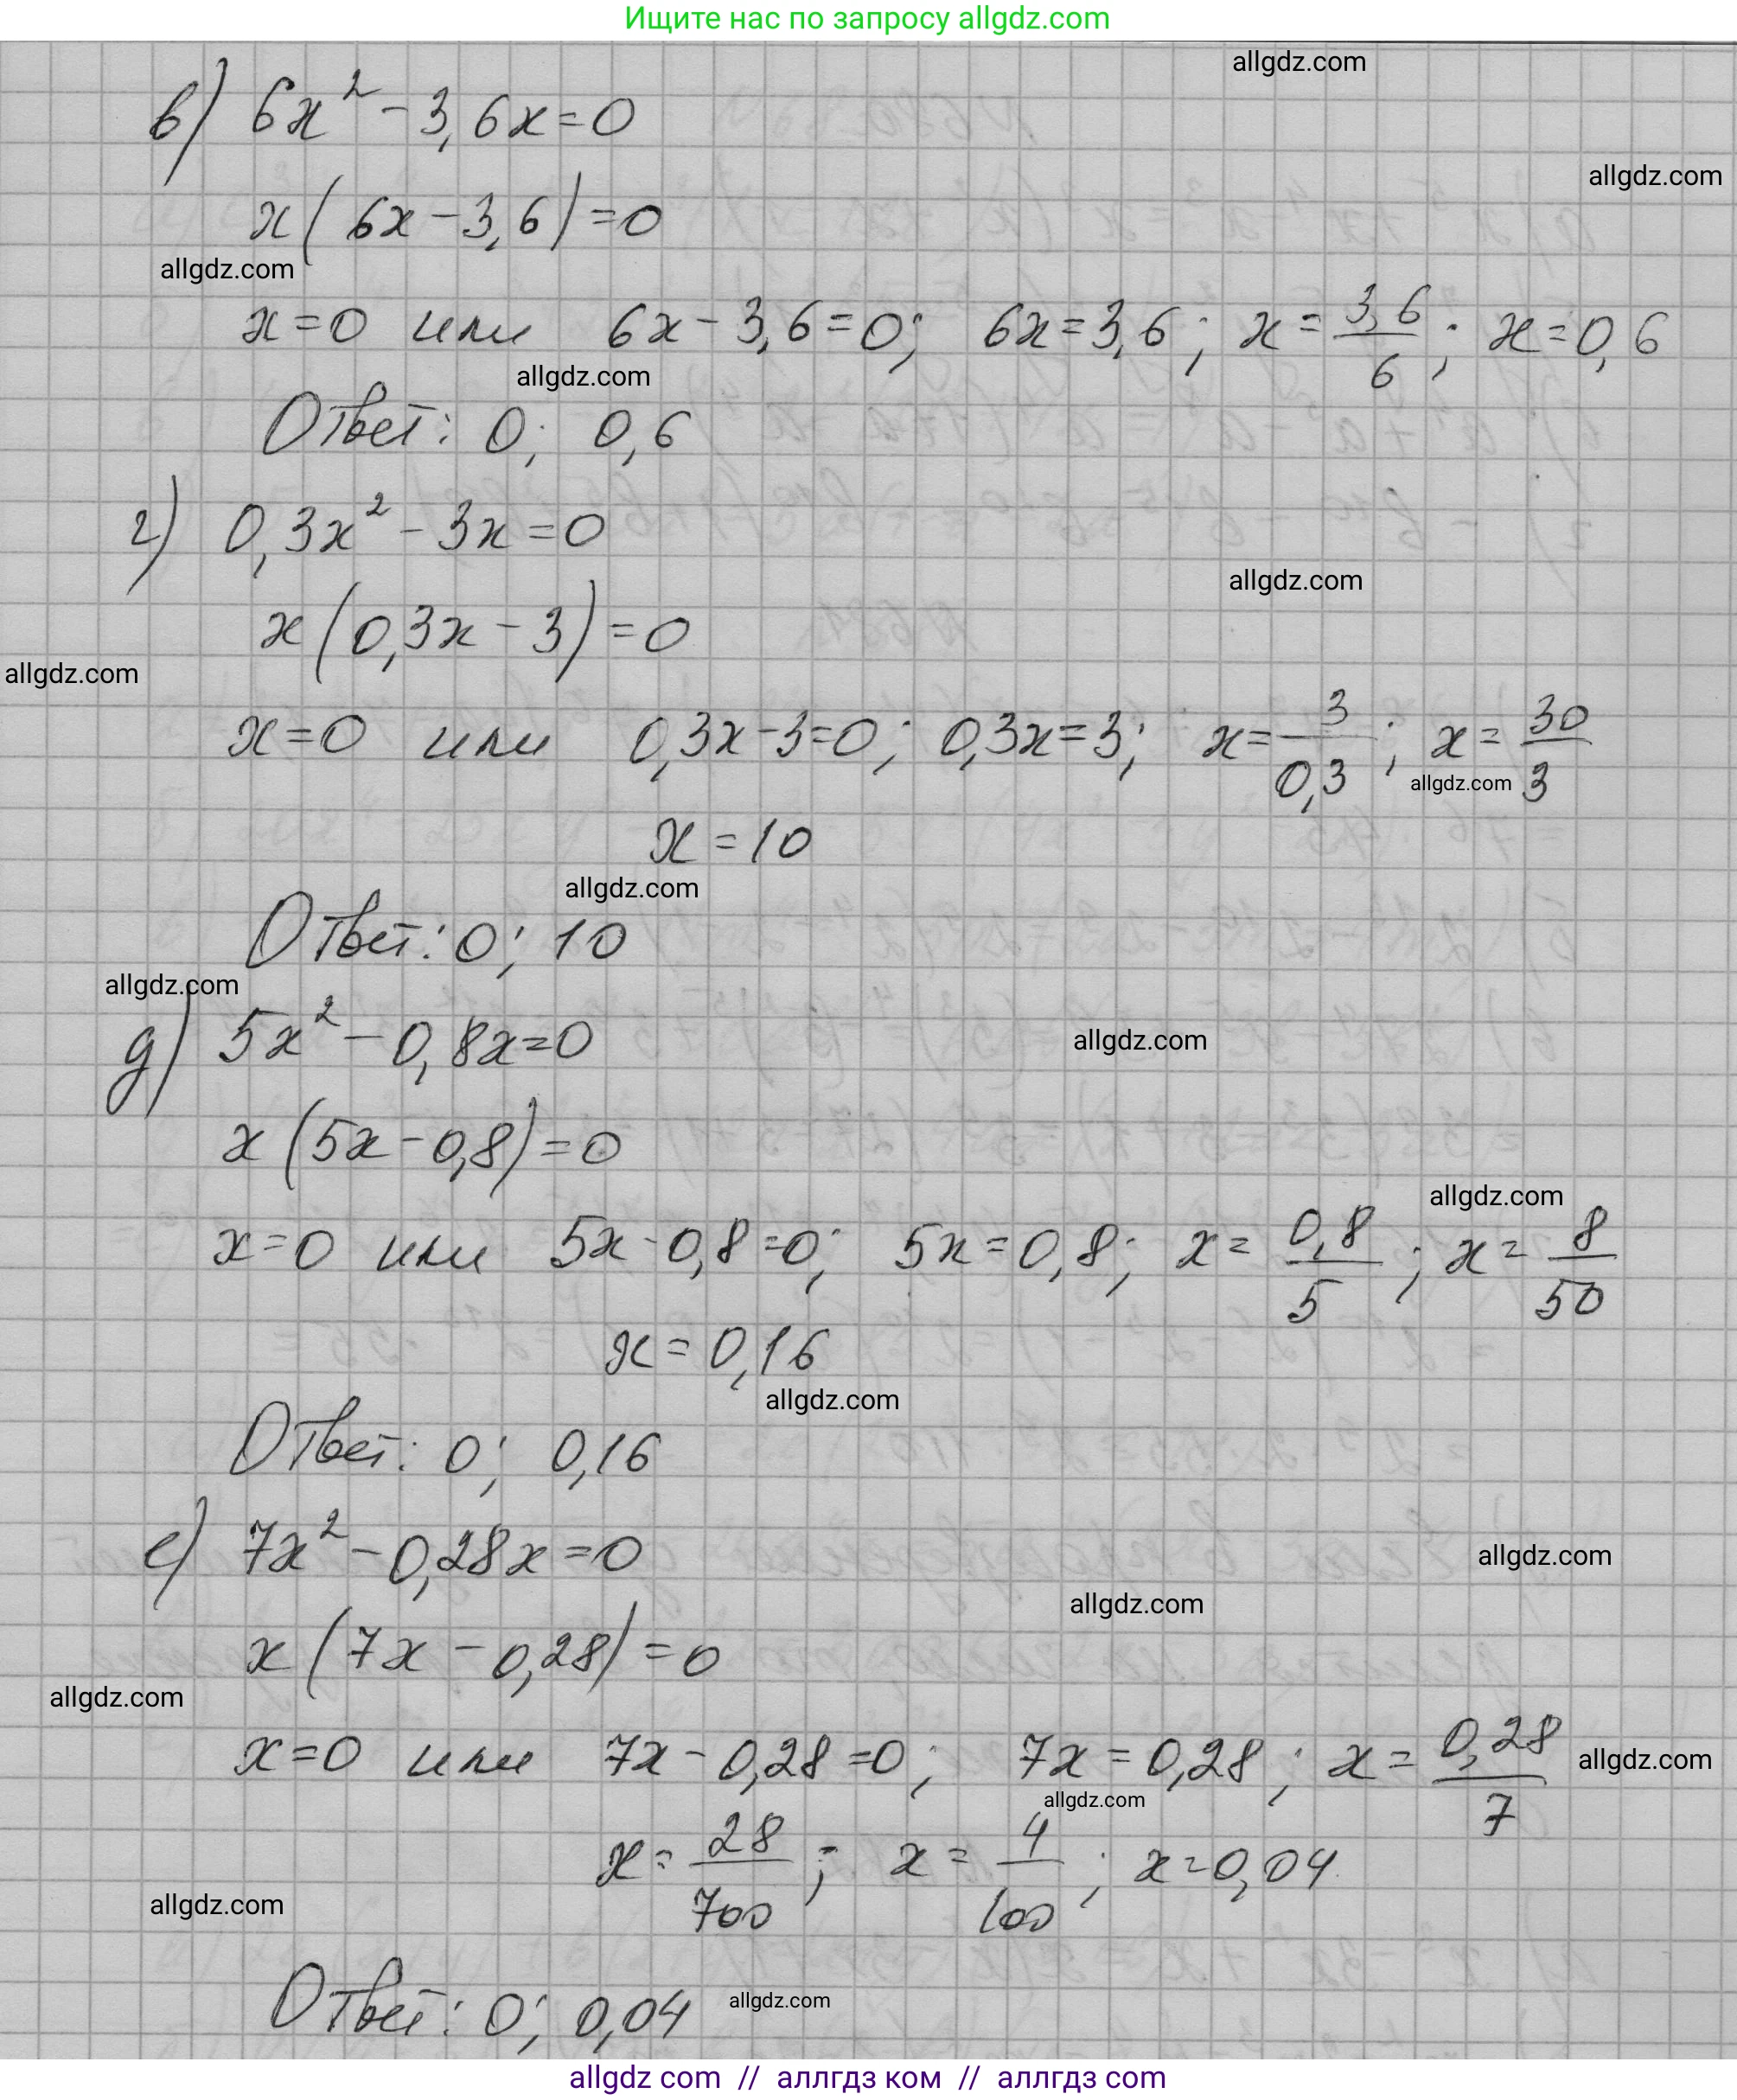 Ищите нас по запросу allgdz.com
allgdz.com
в) 6x² - 3,6x = 0
allgdz.com
x(6x - 3,6) = 0
allgdz.com
x = 0 или 6x - 3,6 = 0; 6x = 3,6; x = 3,6/6; x = 0,6
allgdz.com
Ответ: 0; 0,6
г) 0,3x² - 3x = 0
allgdz.com
x(0,3x - 3) = 0
allgdz.com
x = 0 или 0,3x - 3 = 0; 0,3x = 3; x = 3/0,3; x = 30/3
allgdz.com
x = 10
allgdz.com
Ответ: 0; 10
allgdz.com
д) 5x² - 0,8x = 0
allgdz.com
x(5x - 0,8) = 0
allgdz.com
x = 0 или 5x - 0,8 = 0; 5x = 0,8; x = 0,8/5; x = 8/50
x = 0,16
allgdz.com
Ответ: 0; 0,16
е) 7x² - 0,28x = 0
allgdz.com
allgdz.com
x(7x - 0,28) = 0
allgdz.com
x = 0 или 7x - 0,28 = 0; 7x = 0,28; x = 0,28/7
allgdz.com
allgdz.com
x = 28/700; x = 4/100; x = 0,04
allgdz.com
Ответ: 0; 0,04
allgdz.com
allgdz com // аллгдз ком // аллгдз com